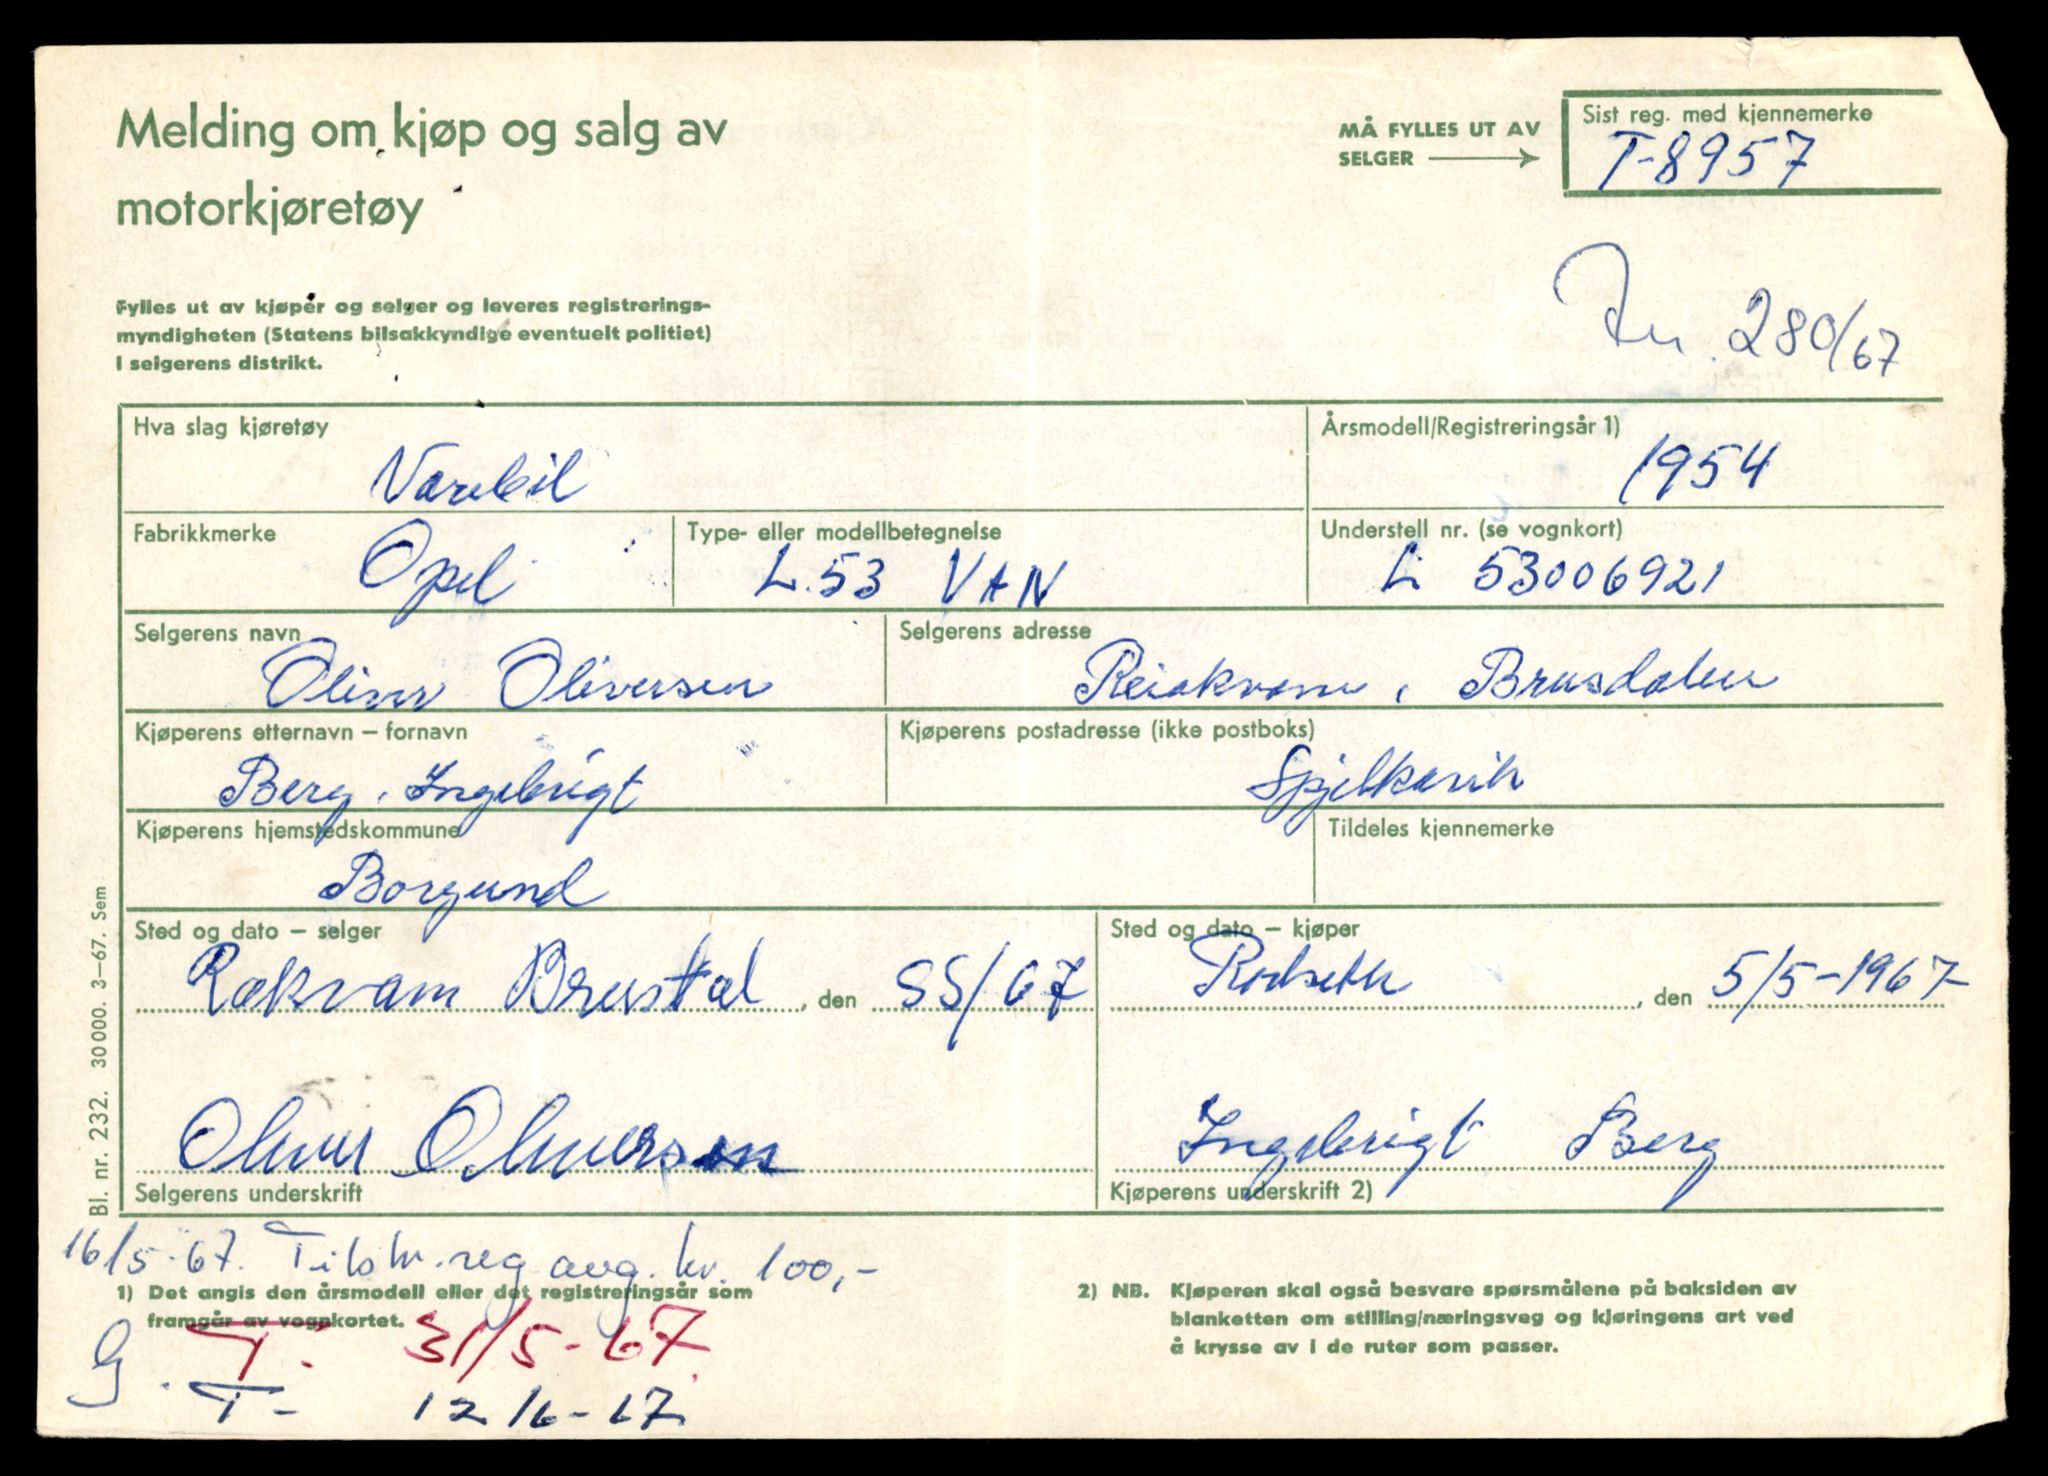 Melding om kjøp og salg av
motorkjøretøy
MÅ FYLLES UT AV
SELGER
Sist reg. med kjennemerke
T-8957
Fylles ut av kjøper og selger og leveres registrerings-
myndigheten (Statens bilsakkyndige eventuelt politiet)
i selgerens distrikt.
280/67
Hva slag kjøretøy
Varebil
Årsmodell/Registreringsår 1)
1954
Fabrikkmerke
Opel
Type- eller modellbetegnelse
L.53 VAN
Understell nr. (se vognkort)
L 53006921
Selgerens navn
Oliver Oliversen
Selgerens adresse
Brusdalen
Kjøperens etternavn – fornavn
Berg, Ingebrigt
Kjøperens postadresse (ikke postboks)
Spjelkavik
Kjøperens hjemstedskommune
Borgund
Tildeles kjennemerke
Sted og dato – selger
Rækvam Brusdal, den 55/67
Sted og dato – kjøper
Rodseth, den 5/5-1967
Oliver Oliversen
Selgerens underskrift
Ingebrigt Berg
Kjøperens underskrift 2)
Bl. nr. 232. 30 000. 3–67. Sem
16/5-67. reg. avg. kr. 100,-
1) Det angis den årsmodell eller det registreringsår som
framgår av vognkortet.
2) NB. Kjøperen skal også besvare spørsmålene på baksiden av
blanketten om stilling/næringsveg og kjøringens art ved
å krysse av i de ruter som passer.
G. T. 31/5-67.
T- 12/6-67